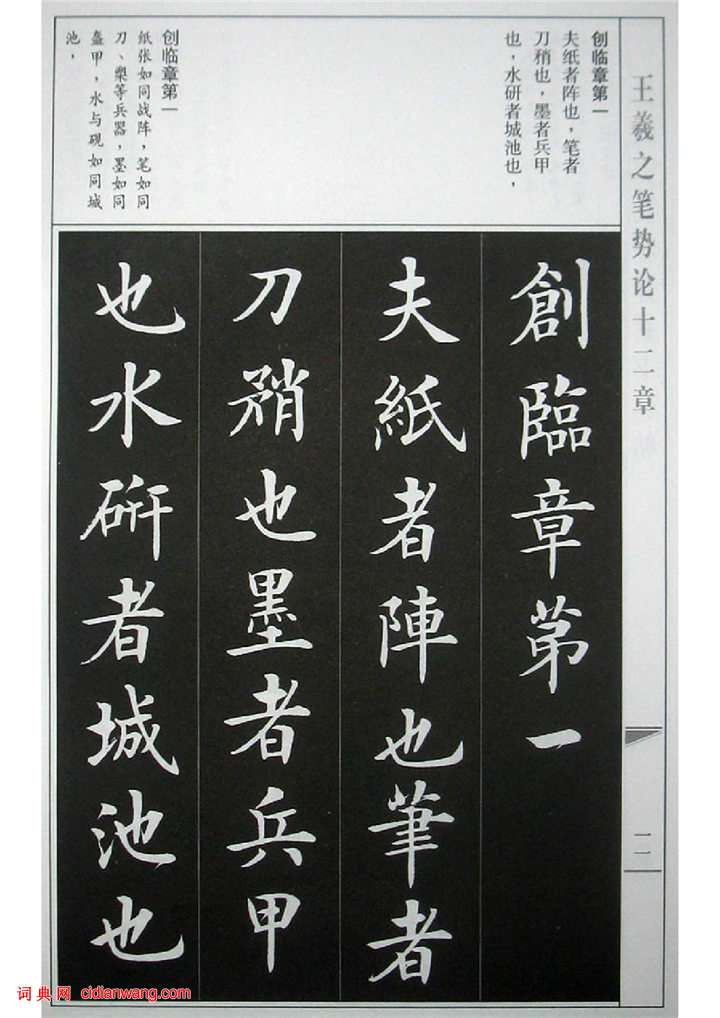 王羲之笔势论十二章
二
创临章第一
夫纸者阵也，笔者
刀矟也，墨者兵甲
也，水研者城池也，
创临章第一
纸张如同战阵，笔如同
刀、槊等兵器，墨如同
盔甲，水与砚如同城
池，
創臨章第一
夫紙者陣也筆者
刀矟也墨者兵甲
也水研者城池也
词典网 cidianwang.com